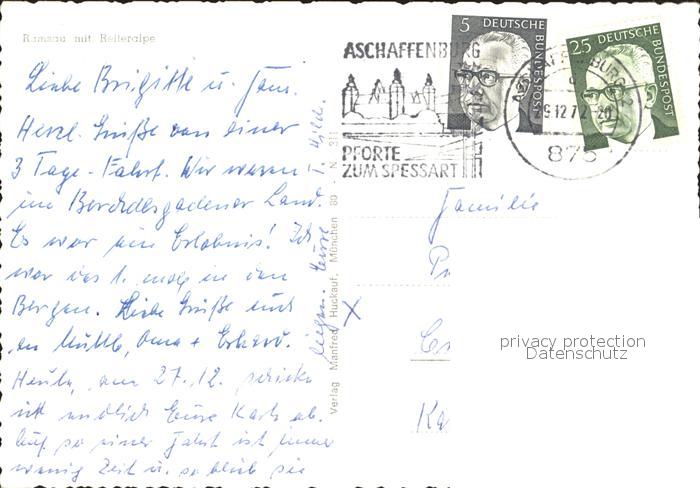 Ramsau mit Reiteralpe
Liebe Brigitte u. Fam.
Herzl. Grüße von einer
3 Tage-Fahrt. Wir waren
im Berchdesgadener Land.
Es war ein Erlebnis! Ich
war das 1. mal in den
Bergen. Liebe Grüße auch
an Mutti, Oma + Erhard.
Heute, am 27.12. schicke
ich endlich Eure Karte ab.
Auf so einer Fahrt ist immer
wenig Zeit u. so blieb sie
liegen. Eure
T. Hilde.
X
Verlag Manfred Huckauf, München 80 - N 311
ASCHAFFENBURG
PFORTE
ZUM SPESSART
5 DEUTSCHE BUNDESPOST
25 DEUTSCHE BUNDESPOST
29.12.72-20
875
Familie
Ka
privacy protection
Datenschutz